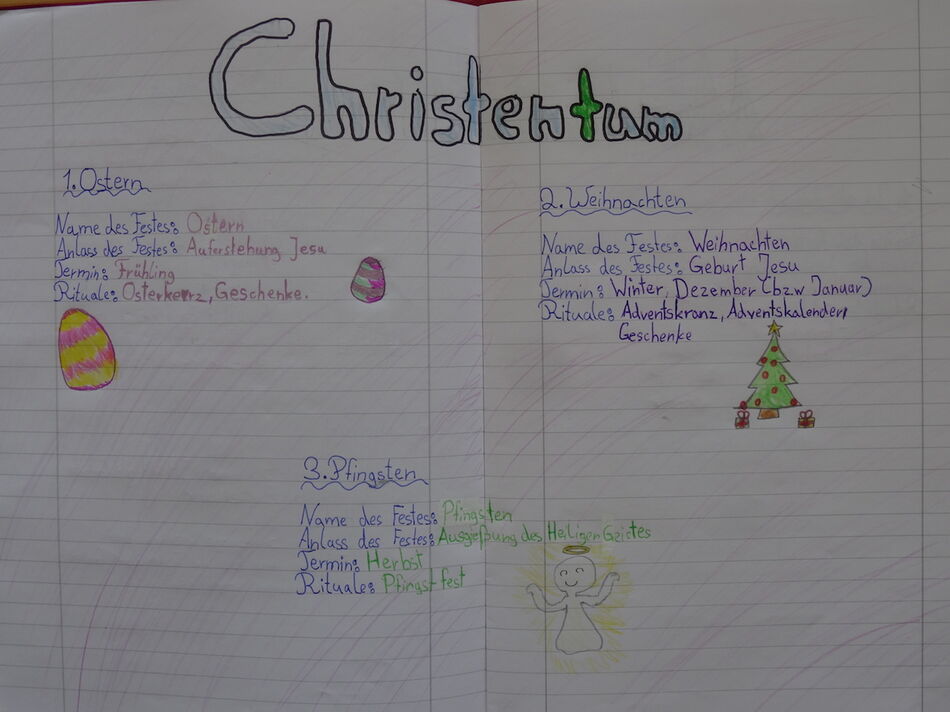 Christentum
1. Ostern
Name des Festes: Ostern
Anlass des Festes: Auferstehung Jesu
Termin: Frühling
Rituale: Osterkerz, Geschenke.
2. Weihnachten
Name des Festes: Weihnachten
Anlass des Festes: Geburt Jesu
Termin: Winter, Dezember (bzw Januar)
Rituale: Adventskranz, Adventskalender,
Geschenke
3. Pfingsten
Name des Festes: Pfingsten
Anlass des Festes: Ausgießung des Heiligen Geistes
Termin: Herbst
Rituale: Pfingstfest